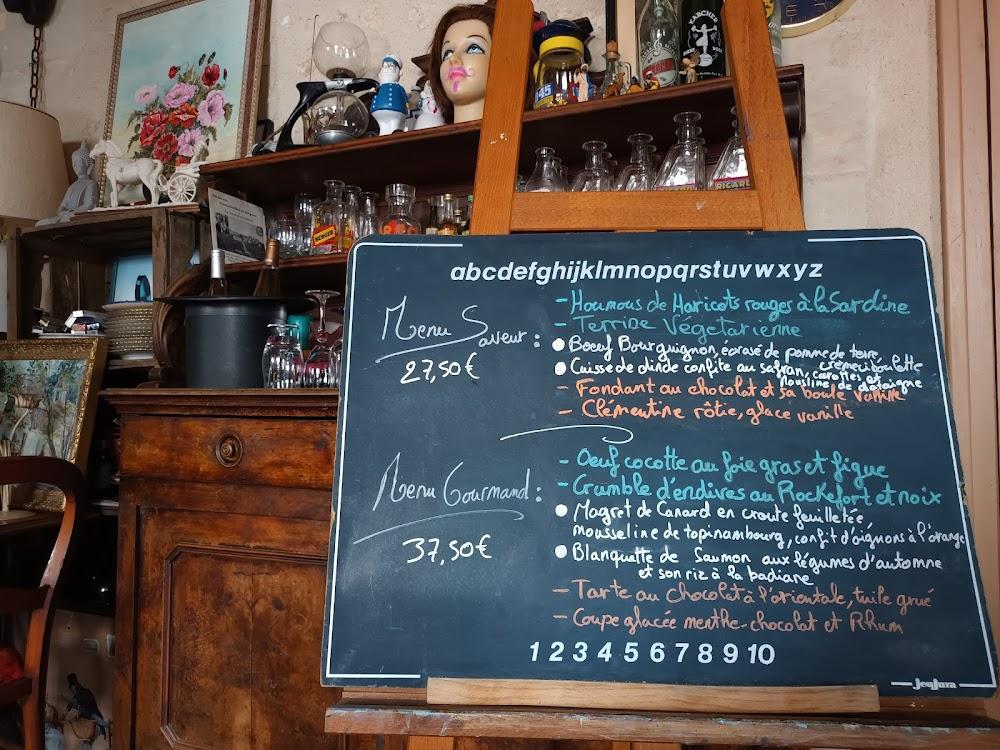 KARCHER
45
RICARD
BERGER
abcdefghijklmnopqrstuvwxyz
Menu Saveur :
27,50€
- Houmous de Haricots rouges à la Sardine
- Terrine Végétarienne
Boeuf Bourguignon, écrasé de pomme de terre, crème ciboulette
Cuisse de dinde confite au safran, carottes et
Mousline de chataigne
- Fondant au chocolat et sa boule vanille
- Clémentine rôtie, glace vanille
Menu Gourmand :
37,50€
- Oeuf cocotte au foie gras et figue
- Crumble d'endives au Rockefort et noix
Magret de Canard en croute feuilletée,
mousseline de topinambourg, confit d'oignons à l'orange
Blanquette de Saumon aux légumes d'automne
et son riz à la badiane
- Tarte au chocolat à l'orientale, tuile grué
- Coupe glacée menthe-chocolat et Rhum
1 2 3 4 5 6 7 8 9 10
JeuJura